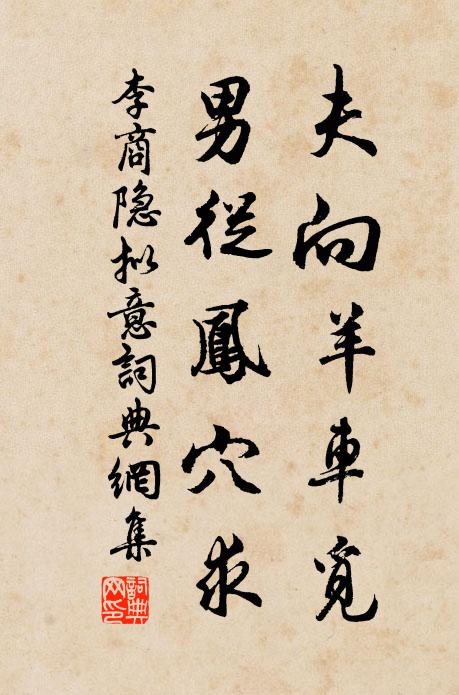 夫向羊車覓
男從鳳穴求
李商隐拟意詞典網集
詞典網印